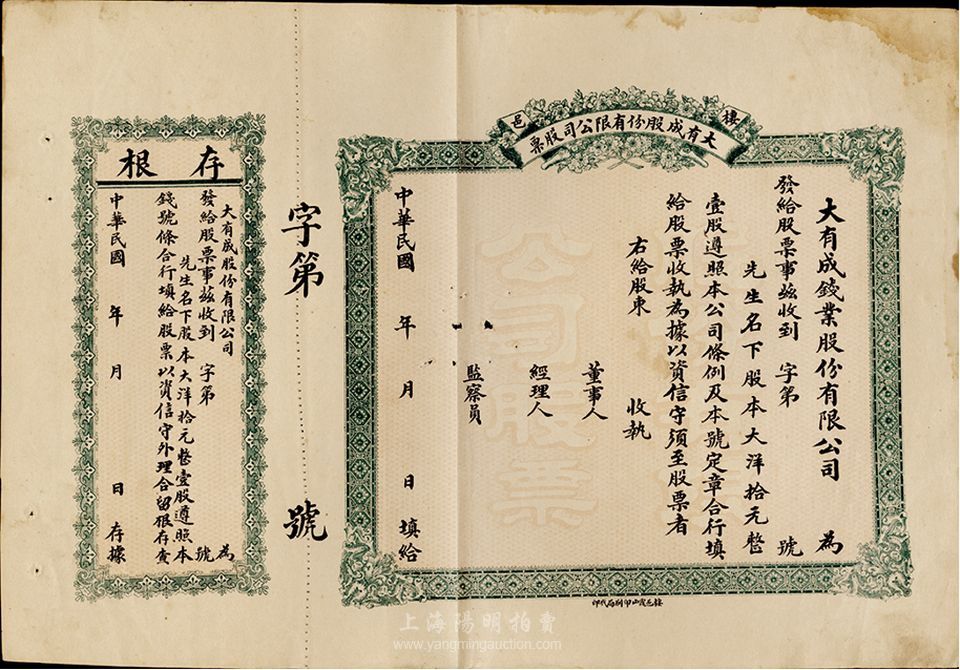 樓邑
大有成股份有限公司股票
大有成錢業股份有限公司 為
發給股票事茲收到 字第 號
先生名下股本大洋拾元整
壹股遵照本公司條例及本號定章合行填
給股票收執為據以資信守須至股票者
右給股東 收執
董事人
經理人
監察員
中華民國 年 月 日 填給
公司股票
字第 號
存根
大有成股份有限公司 為
發給股票事茲收到 字第 號
先生名下股本大洋拾元整壹股遵照本
錢號條合行填給股票以資信守外理合留根存查
中華民國 年 月 日 存據
上海陽明拍賣
www.yangmingauction.com